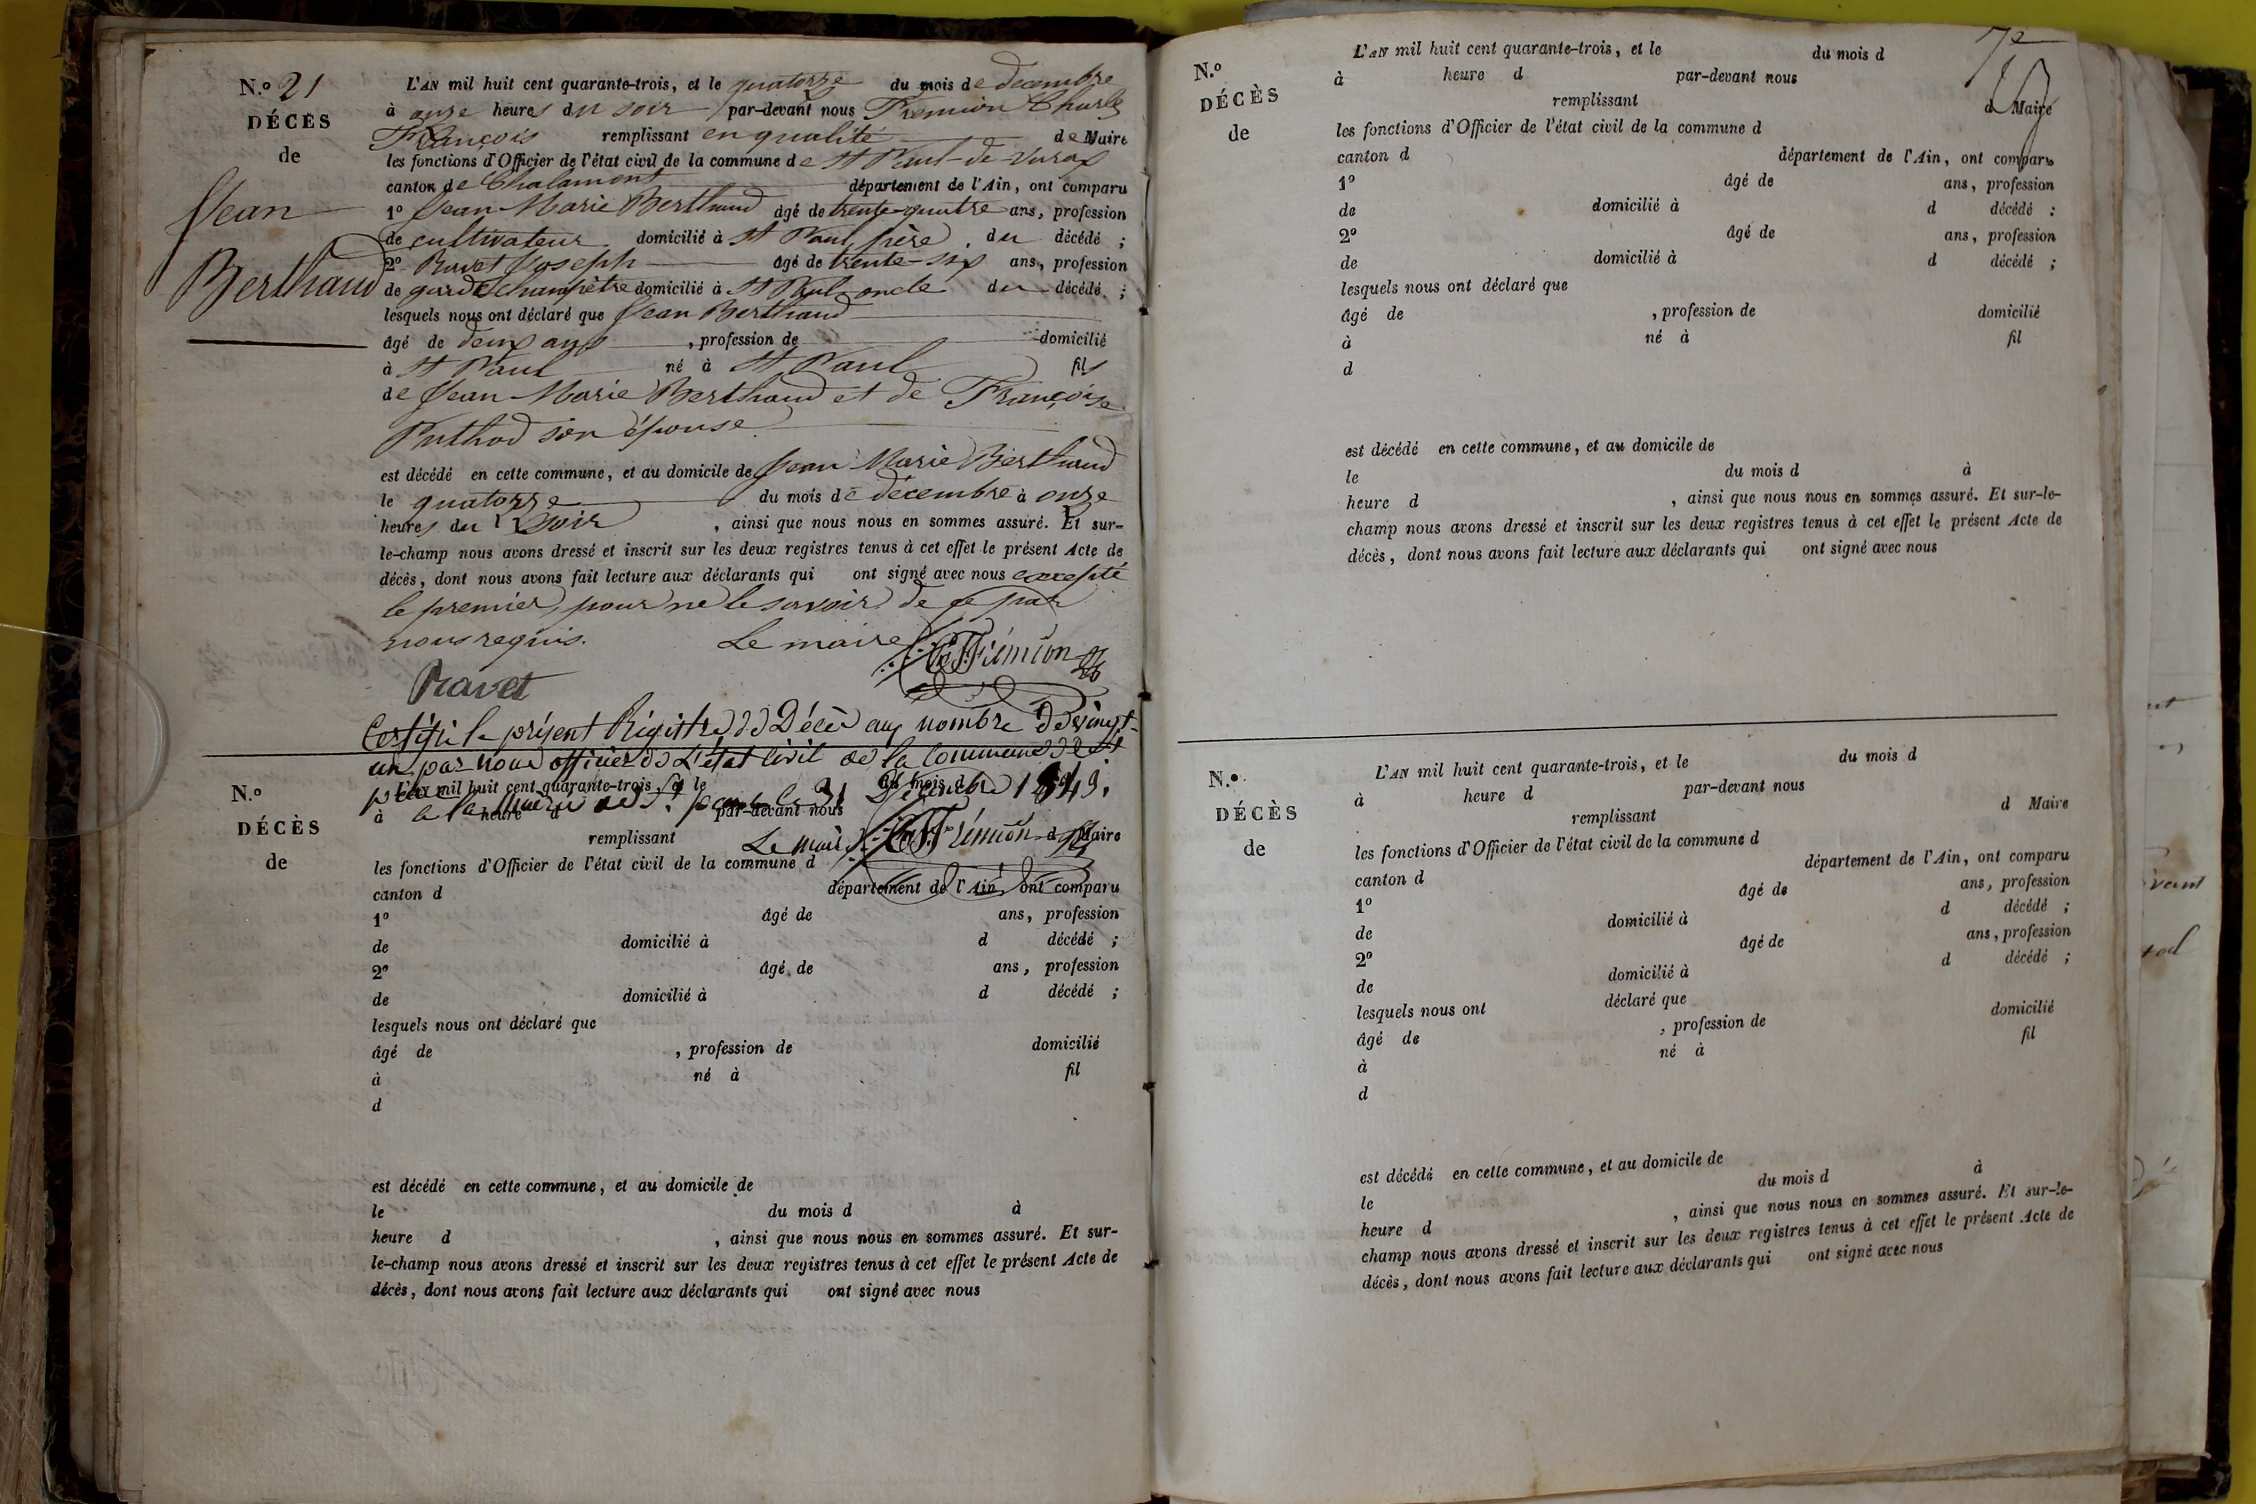 N.º 21
DÉCÈS
de
Jean
Berthaud
L'AN mil huit cent quarante-trois, et le quatorze du mois de décembre
à onze heures du soir par-devant nous Fremion Charles
François remplissant en qualité de Maire
les fonctions d'Officier de l'état civil de la commune de St Paul-de-Varax
canton de Chalamont département de l'Ain, ont comparu
1º Jean Marie Berthaud âgé de trente-quatre ans, profession
de cultivateur domicilié à St Paul, père du décédé ;
2º Ravet Joseph âgé de trente-six ans, profession
de garde champêtre domicilié à St Paul oncle du décédé ;
lesquels nous ont déclaré que Jean Berthaud
âgé de deux ans , profession de domicilié
à St Paul né à St Paul fils
de Jean Marie Berthaud et de Françoise
Puthod son épouse
est décédé en cette commune, et au domicile de Jean Marie Berthaud
le quatorze du mois de décembre à onze
heures du soir , ainsi que nous nous en sommes assuré. Et sur-
le-champ nous avons dressé et inscrit sur les deux registres tenus à cet effet le présent Acte de
décès, dont nous avons fait lecture aux déclarants qui ont signé avec nous excepté
le premier, pour ne le savoir de ce par
nous requis. Le maire
Ch F Frémion
Ravet
Certifié le présent Régistre de Décès au nombre de vingt-
un par nous officier de L'état Civil de la Commune de St
paul a la Mairie de St paul le 31 Décembre 1843.
Le maire Ch F Frémion
N.º
DÉCÈS
de
L'AN mil huit cent quarante-trois, et le du mois d
à heure d par-devant nous
remplissant d Maire
les fonctions d'Officier de l'état civil de la commune d
canton d département de l'Ain, ont comparu
1º âgé de ans, profession
de domicilié à d décédé ;
2º âgé de ans, profession
de domicilié à d décédé ;
lesquels nous ont déclaré que
âgé de , profession de domicilié
à né à fil
d
est décédé en cette commune, et au domicile de
le du mois d à
heure d , ainsi que nous nous en sommes assuré. Et sur-
le-champ nous avons dressé et inscrit sur les deux registres tenus à cet effet le présent Acte de
décès, dont nous avons fait lecture aux déclarants qui ont signé avec nous
N.º
DÉCÈS
de
L'AN mil huit cent quarante-trois, et le du mois d
à heure d par-devant nous
remplissant d Maire
les fonctions d'Officier de l'état civil de la commune d
canton d département de l'Ain, ont comparu
1º âgé de ans, profession
de domicilié à d décédé :
2º âgé de ans, profession
de domicilié à d décédé ;
lesquels nous ont déclaré que
âgé de , profession de domicilié
à né à fil
d
est décédé en cette commune, et au domicile de
le du mois d à
heure d , ainsi que nous nous en sommes assuré. Et sur-le-
champ nous avons dressé et inscrit sur les deux registres tenus à cet effet le présent Acte de
décès, dont nous avons fait lecture aux déclarants qui ont signé avec nous
N.º
DÉCÈS
de
L'AN mil huit cent quarante-trois, et le du mois d
à heure d par-devant nous
remplissant d Maire
les fonctions d'Officier de l'état civil de la commune d
canton d département de l'Ain, ont comparu
1º âgé de ans, profession
de domicilié à d décédé ;
2º âgé de ans, profession
de domicilié à d décédé ;
lesquels nous ont déclaré que
âgé de , profession de domicilié
à né à fil
d
est décédé en cette commune, et au domicile de
le du mois d à
heure d , ainsi que nous nous en sommes assuré. Et sur-le-
champ nous avons dressé et inscrit sur les deux registres tenus à cet effet le présent Acte de
décès, dont nous avons fait lecture aux déclarants qui ont signé avec nous